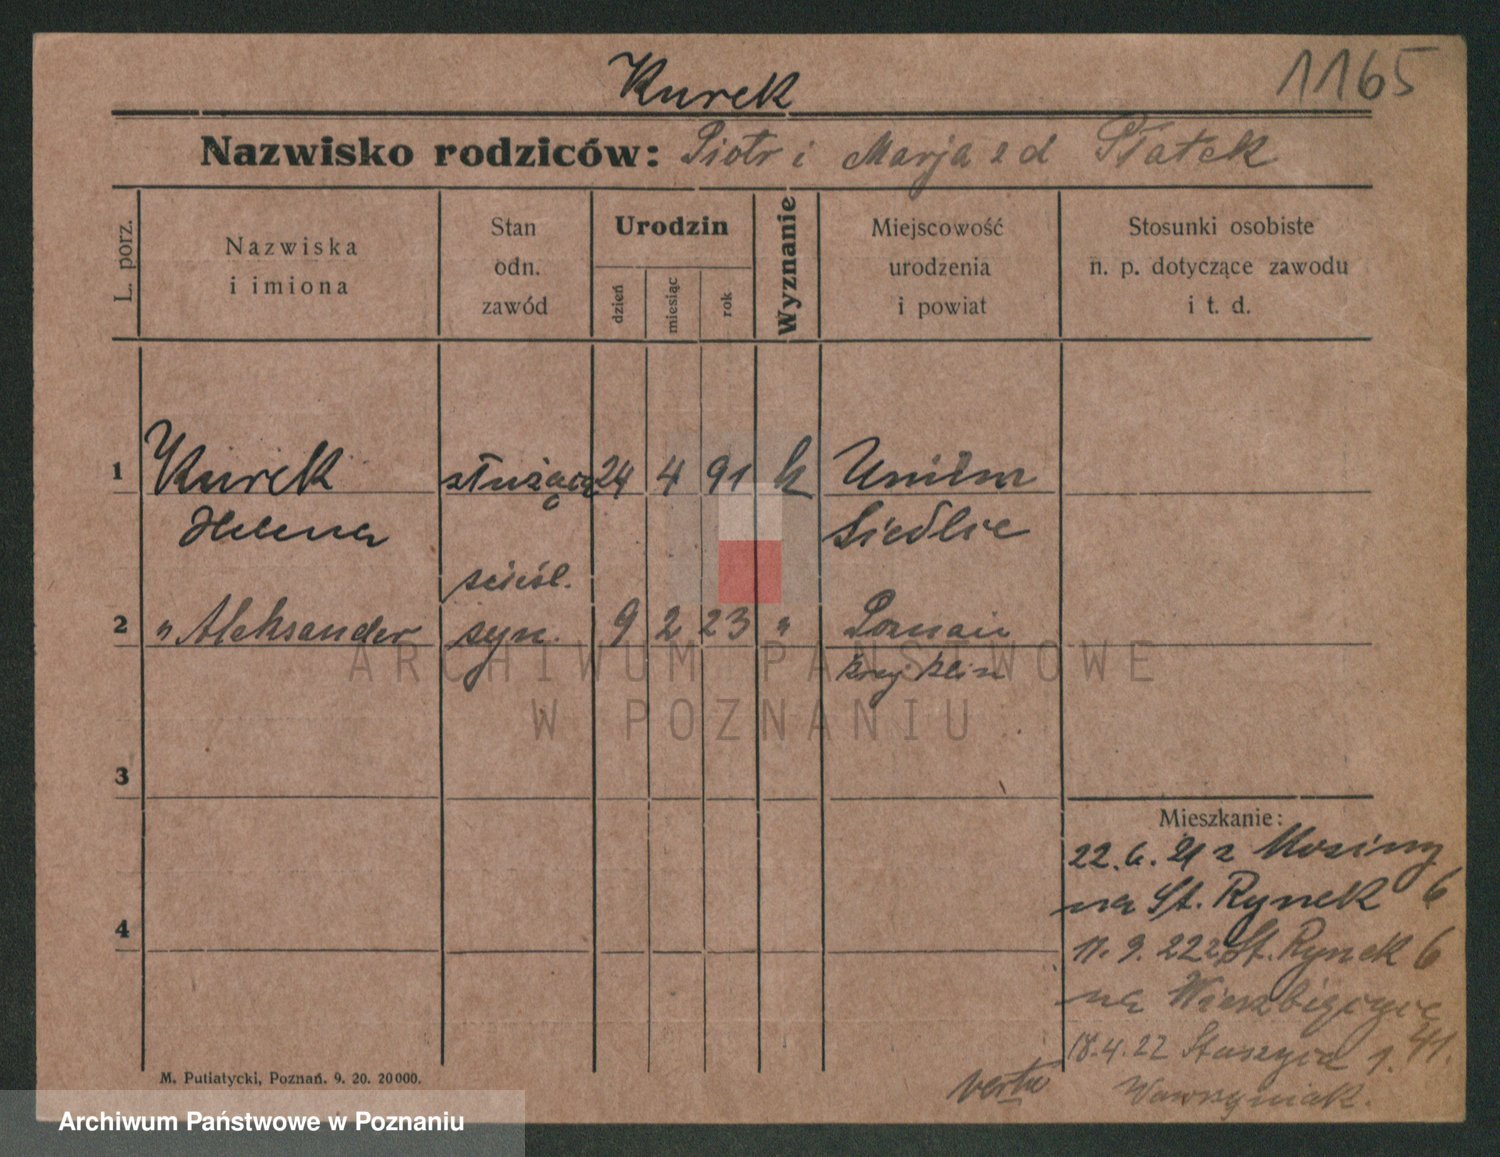 1165
Kurek
Nazwisko rodziców: Piotr i Marja z d Płatek
L. porz.
Nazwiska i imiona
Stan odn. zawód
Urodzin
dzień
miesiąc
rok
Wyznanie
Miejscowość urodzenia i powiat
Stosunki osobiste n. p. dotyczące zawodu i t. d.
1 Kurek służąca 24 4 91 k
Helena Siedlce
syn.
2 " Aleksander 9 2 23 " Poznań
3
4
Mieszkanie:
22. 6. 21 z Mosiny
na St. Rynek 6
11. 9. 22 z St. Rynek 6
na
18. 4. 22 Staszyca 1. 41.
Wawrzyniak.
verte
M. Putiatycki, Poznań. 9. 20. 20 000.
ARCHIWUM PAŃSTWOWE
W POZNANIU
Archiwum Państwowe w Poznaniu